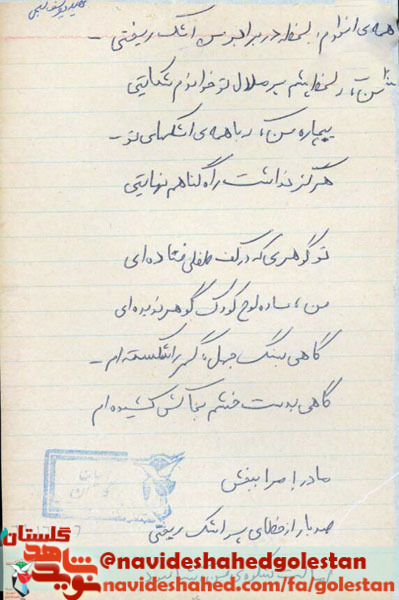 همه‌ی اندام، لحظه در برابر من اشک ریختی -
پر ملال تو خواندم شکایتی
بیچاره من، که با همه‌ی اشکهای تو -
هرگز نداشت راه گناهم نهایتی
تو گوهری که در کف طفلی فتاده‌ای
من، ساده لوح کودک گوهر ندیده‌ای
گاهی بسنگ جهل، گهر را شکسته‌ام -
گاهی بدست خشم بخاکش کشیده‌ام
مادر! مرا ببخش
صد بار از خطای پسر اشک ریختی
گلستان
نوید شاهد
@navideshahedgolestan
navideshahed.com/fa/golestan